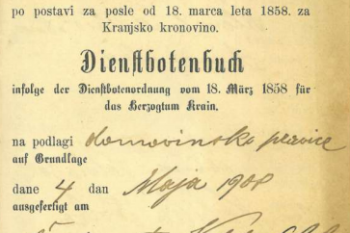 po postavi za posle od 18. marca leta 1858. za
Kranjsko kronovino.
Dienstbotenbuch
infolge der Dienstbotenordnung vom 18. März 1858 für
das Herzogtum Krain.
na podlagi domovinske pravice
auf Grundlage
dane 4 dan Maja 1908
ausgefertigt am